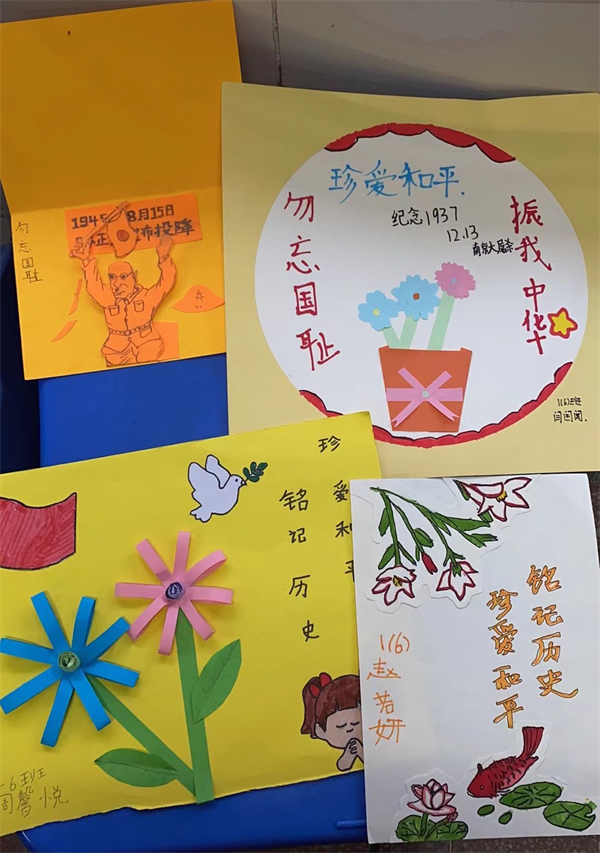 1945 8月15日
布投降
勿忘国耻
珍爱和平.
纪念1937
12.13
南京大屠杀
勿忘国耻
振我中华
1(6)班
闫闰闻.
珍爱和平
铭记历史
一6班
周馨悦
铭记历史
珍爱和平
1(6)
赵若妍